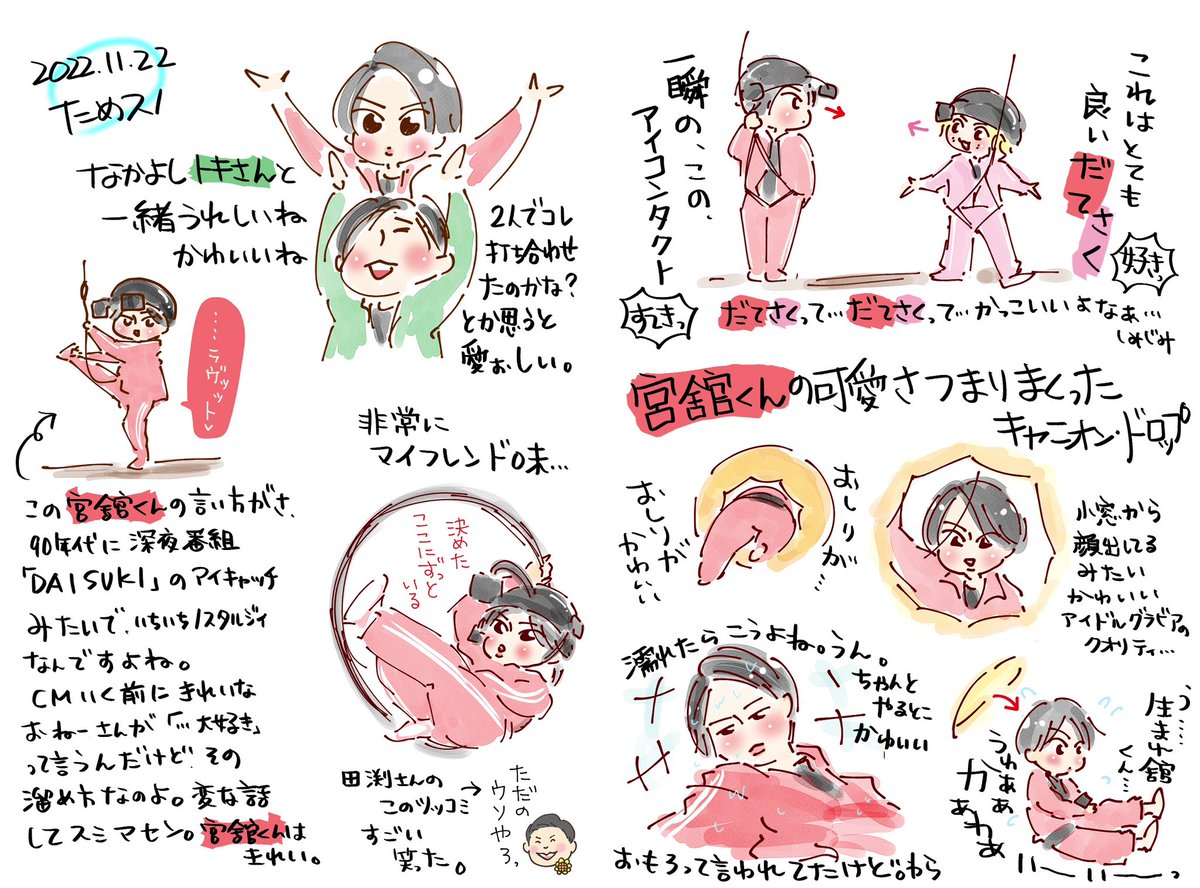 2022.11.22
ためスノ
なかよしトキさんと
一緒うれしいね
かわいいね
2人でコレ
打ち合わせ
たのかな?
とか思うと
愛おしい。
…ラヴィット♡
この宮舘くんの言い方がさ、
90年代に深夜番組
「DAISUKI」のアイキャッチ
みたいで、いちいちノスタルジィ
なんですよね。
CMいく前にきれいな
おねーさんが「…大好き」
って言うんだけど、その
溜め方なのよ。変な話
してスミマセン。宮舘くんは
きれい。
非常に
マイフレンドロ味…
決めた
ここにずっと
いる
田渕さんの
このツッコミ→
すごい
笑った。
ただの
ウソやろっ
一瞬の、この、
アイコンタクト
すてきっ
これはとても
良いだてさく
好きっ
だてさくって…だてさくって…かっこいいよなぁ…
しみじみ
宮舘くんの可愛さつまりまくった
キャニオン・ドロップ
おしりが…
おしりが
かわいい
小窓から
顔出してる
みたい
かわいい
アイドルグラビアの
クオリティ…
濡れたらこうよね。うん。
ちゃんと
やるとこ
かわいい
おもろって言われてたけど。わら
う…
生まれ舘
くん…
うわぁぁ
かぁわあ
いいーーーっ